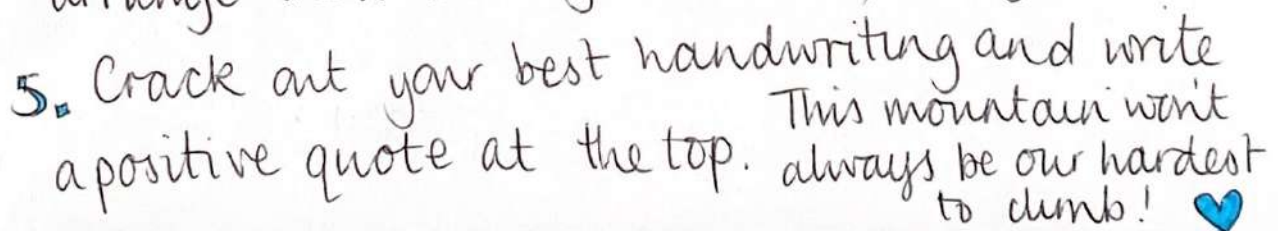 5. Crack out your best handwriting and write
a positive quote at the top.
This mountain won't
always be our hardest
to climb!